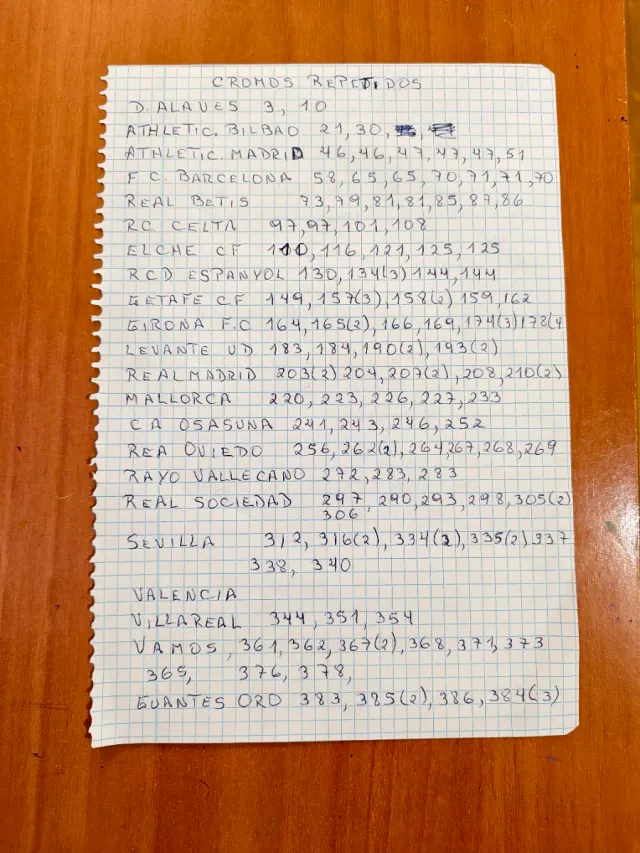 CROMOS REPETIDOS
D. ALAVES 3, 10
ATHLETIC. BILBAO 21, 30,
ATHLETIC. MADRID 46, 46, 47, 47, 47, 51
F C. BARCELONA 58, 65, 65, 70, 71, 71, 70
REAL BETIS 73, 79, 81, 81, 85, 87, 86
RC. CELTA 97, 97, 101, 108
ELCHE CF 110, 116, 121, 125, 125
RCD ESPANYOL 130, 134(3) 144, 144
GETAFE CF 149, 157(3), 158(2) 159, 162
GIRONA F.C 164, 165(2), 166, 169, 174(3) 178(4
LEVANTE UD 183, 184, 190(2), 193(2)
REAL MADRID 203(2) 204, 207(2), 208, 210(2)
MALLORCA 220, 223, 226, 227, 233
CA OSASUNA 241, 243, 246, 252
REA OVIEDO 256, 262(2), 264, 267, 268, 269
RAYO VALLECANO 272, 283, 283
REAL SOCIEDAD 297, 290, 293, 298, 305(2)
306
SEVILLA 312, 316(2), 334(3), 335(2) 337
338, 340
VALENCIA
VILLAREAL 344, 351, 354
VAMOS, 361, 362, 367(2), 368, 371, 373
365, 376, 378,
GUANTES ORO 383, 385(2), 386, 384(3)